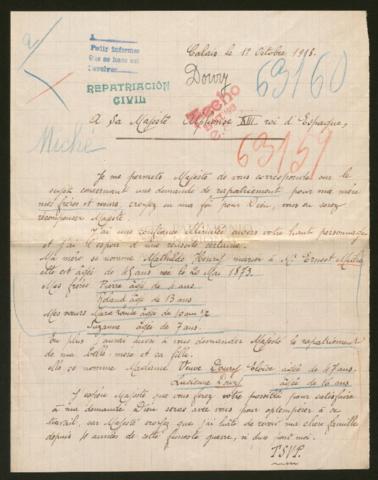 Pedir informes
que se hace así
REPATRIACIÓN
CIVIL
Calais le 1er Octobre 1918.
Douvry
63160
Hecho
A Sa Majesté Alphonse XIII roi d'Espagne,
63159
Je me permets Majesté de vous correspondre sur le
sujet concernant une demande de rapatriement pour ma mère
mes frères et sœurs, croyez en ma foi pour Dieu, vous en serez
récompenser Majesté.
J'ai une confiance illimitée envers votre haut personnage
et j'ai l'espoir d'une réussite certaine.
Ma mère se nomme Mathilde Henry marier à Mr Ernest
elle est agée de 45 ans née le 20 Mai 1873.
Mes frères Pierre âgé de ans
Roland âgé de 13 ans
Mes sœurs âgée de 10 ans 1/2
Suzanne âgée de 7 ans.
En plus j'aurai aussi à vous demander Majesté le rapatriement
de ma belle-mère et sa fille.
elle se nomme Madame Veuve Douvry Éloïse agée de 47 ans.
Lucienne âgée de 20 ans
J'espère Majesté que vous ferez votre possible pour satisfaire
à ma demande Dieu seras avec vous pour optemperer à ce
travail, car Majesté croyez que j'ai hâte de revoir ma chère famille
depuis 4 années de cette funeste guerre, si dur pour moi.
T.S.V.P.